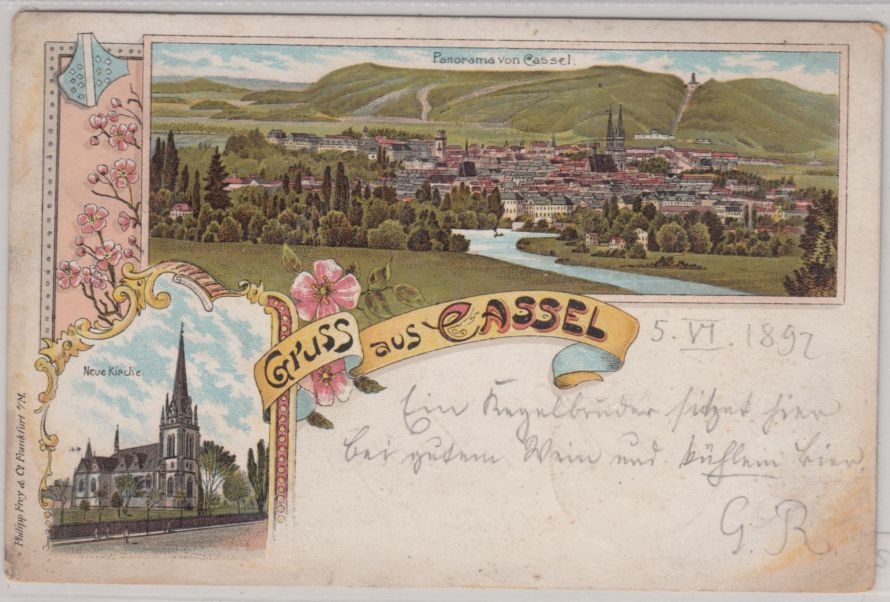 Panorama von Cassel.
Neue Kirche.
Gruss aus CASSEL
5. VI. 1897
Ein Kegelbruder sitzet hier
bei gutem Wein und kühlem Bier.
G. R.
Philipp Frey & Co Frankfurt a/M.